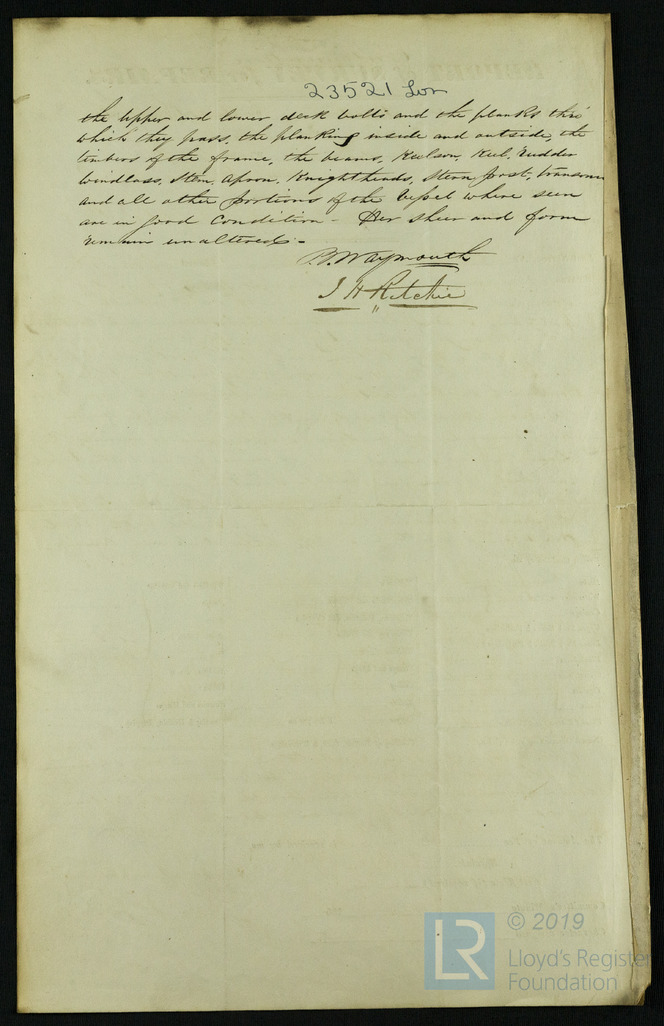 23521 Lon
the Upper and lower deck bolts and the planks thro'
which they pass, the planking inside and outside, the
timbers of the frame, the beams, Keelson, Keel, Rudder
Windlass, Stem, Apron, Knightheads, Stern post, transoms
and all other portions of the Vessel where seen
are in good condition - Her sheer and form
remain unaltered. -
B. Waymouth
J H Ritchie
LR
© 2019
Lloyd's Register
Foundation